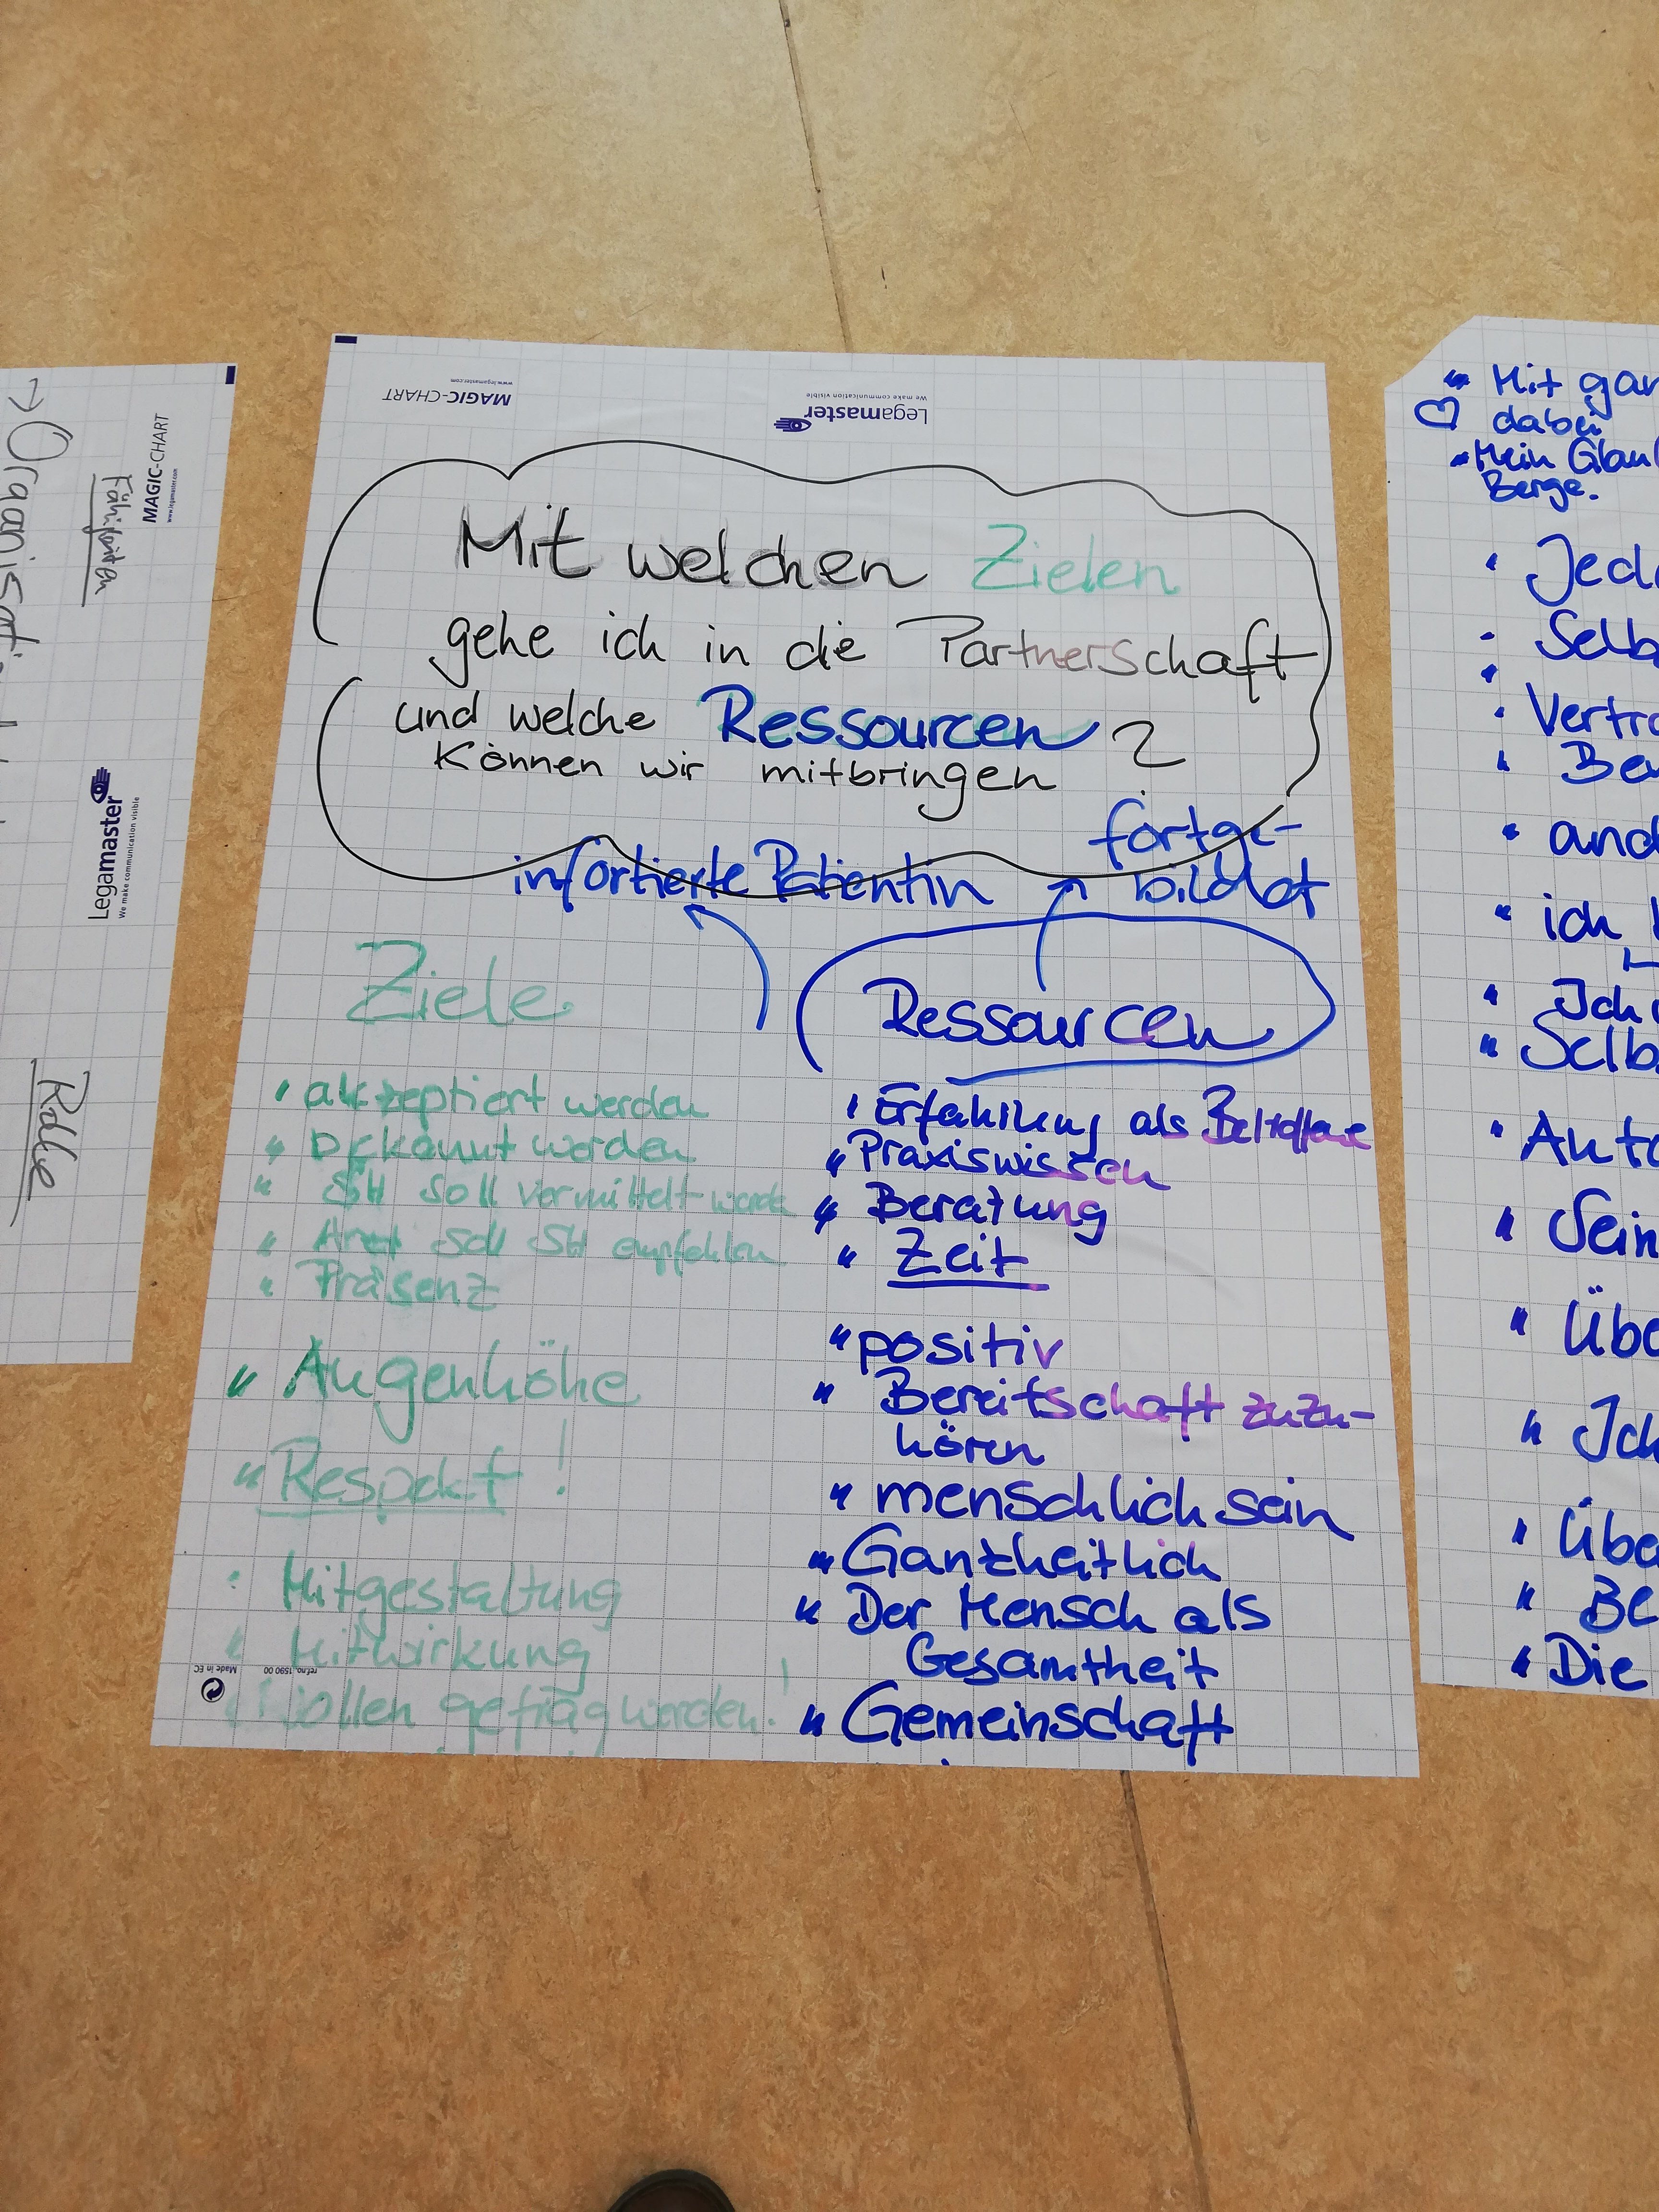 MAGIC-CHART
www.legamaster.com
Legamaster
We make communication visible
Mit welchen Zielen
gehe ich in die Partnerschaft
und welche Ressourcen ?
können wir mitbringen
infortierte Patientin
fortge-
bildet
Ziele
akzeptiert werden
bekannt werden
SH soll vermittelt werden
Arzt soll SH empfehlen
Präsenz
Augenhöhe
Respekt !
Mitgestaltung
Mitwirkung
wollen gefragt werden!
Ressourcen
Erfahrung als Betroffene
Praxiswissen
Beratung
Zeit
positiv
Bereitschaft zuzu-
hören
menschlich sein
Ganzheitlich
Der Mensch als
Gesamtheit
Gemeinschaft
ref.no. 1590 00 Made in EC
Fähigkeiten
MAGIC-CHART
www.legamaster.com
Legamaster
We make communication visible
Mit gan
dabei
Mein Glau
Berge.
Jed
Selb
Vertra
Be
and
ich
Ich
Selb
Auto
Sein
Übe
Ich
Übe
Be
Die